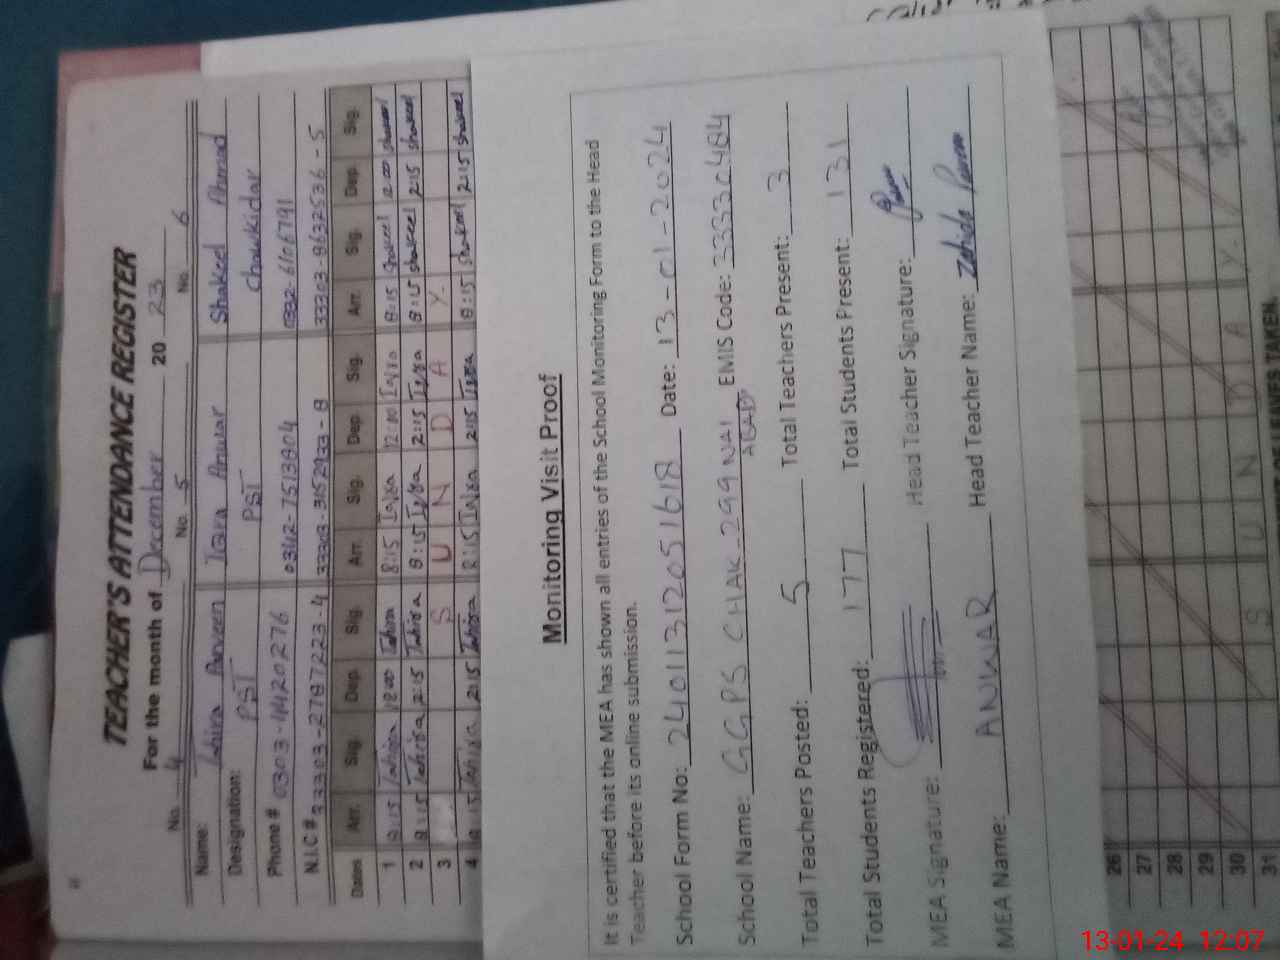 TEACHER'S ATTENDANCE REGISTER
For the month of December 20 23
No. 4 No. 5 No. 6
Name: Tahira Parveen Iqra Anwar Shakeel Ahmad
Designation: PST PST Chaukidar
Phone # 0303-4420276 0342-7513804 0332-6106791
N.I.C # 33303-2787223-4 33303-3152933-8 33303-9632536-5
Dates Arr. Sig. Dep. Sig. Arr. Sig. Dep. Sig. Arr. Sig. Dep. Sig.
1 8:15 Tahira 12:00 Tahira 8:15 Iqra 12:00 Iqra 8:15 Shakeel 12:00 Shakeel
2 8:15 Tahira 2:15 Tahira 8:15 Iqra 2:15 Iqra 8:15 Shakeel 2:15 Shakeel
3 S U N D A Y
4 8:15 Tahira 2:15 Tahira 8:15 Iqra 2:15 Iqra 8:15 Shakeel 2:15 Shakeel
Monitoring Visit Proof
It is certified that the MEA has shown all entries of the School Monitoring Form to the Head
Teacher before its online submission.
School Form No: 24011312051618 Date: 13-01-2024
School Name: GGPS CHAK 299 NAI ABADI EMIS Code: 33330484
Total Teachers Posted: 5 Total Teachers Present: 3
Total Students Registered: 177 Total Students Present: 131
MEA Signature: Head Teacher Signature:
MEA Name: ANWAR Head Teacher Name: Zahida Parveen
26
27
28
29
30
31 S U N D A Y
LEAVES TAKEN
13-01-24 12:07